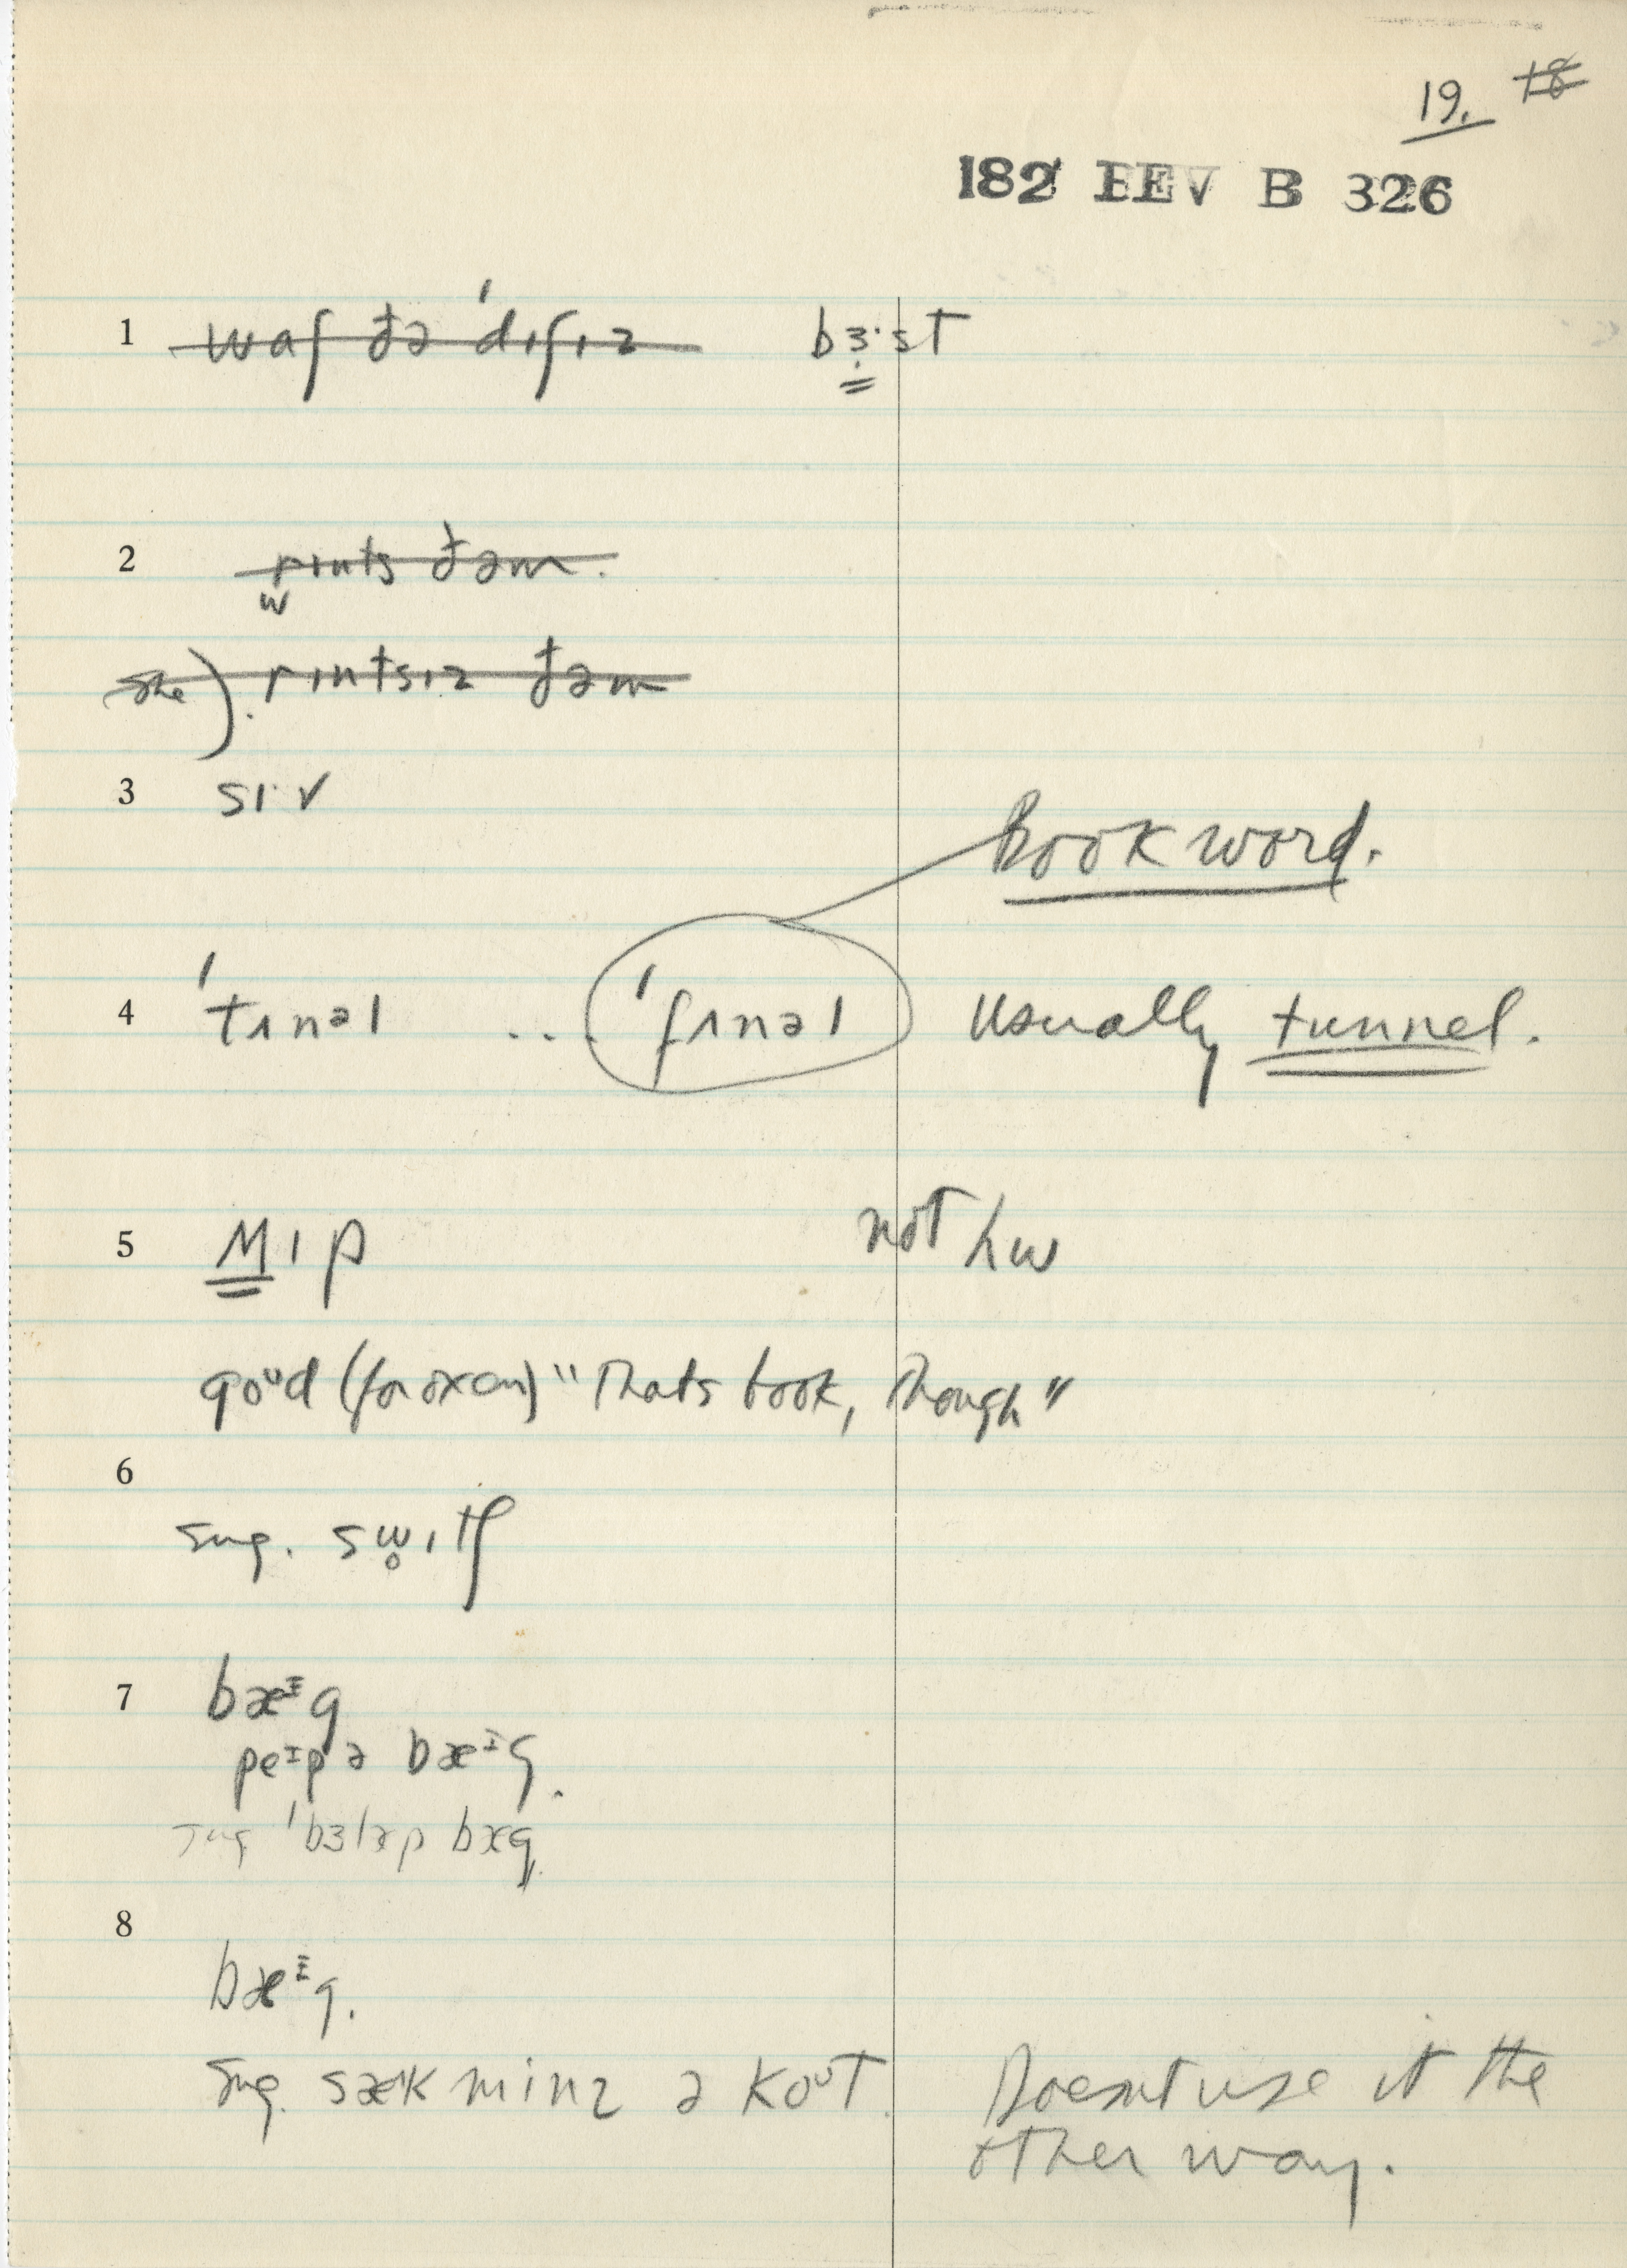 19. 18
182 EEV B 326
1 waʃ ðə ˈdɪʃɪz bɜ·st
2 rɪnts ðəm.
w
she). rɪntsɪz ðəm
3 sɪ·v
Book word.
4 ˈtʌnəl ... ˈfʌnəl usually tunnel.
5 ʍɪp not hw
goᴜd (for oxen) "That's book, though"
6
sug. sw̥ɪtʃ
7 bæᴵg
peᴵpə bæᴵg.
sug ˈbɜləp bæg
8
bæᴵg.
Sug. sæk minz ə koᴜt. Doesn't use it the
other way.